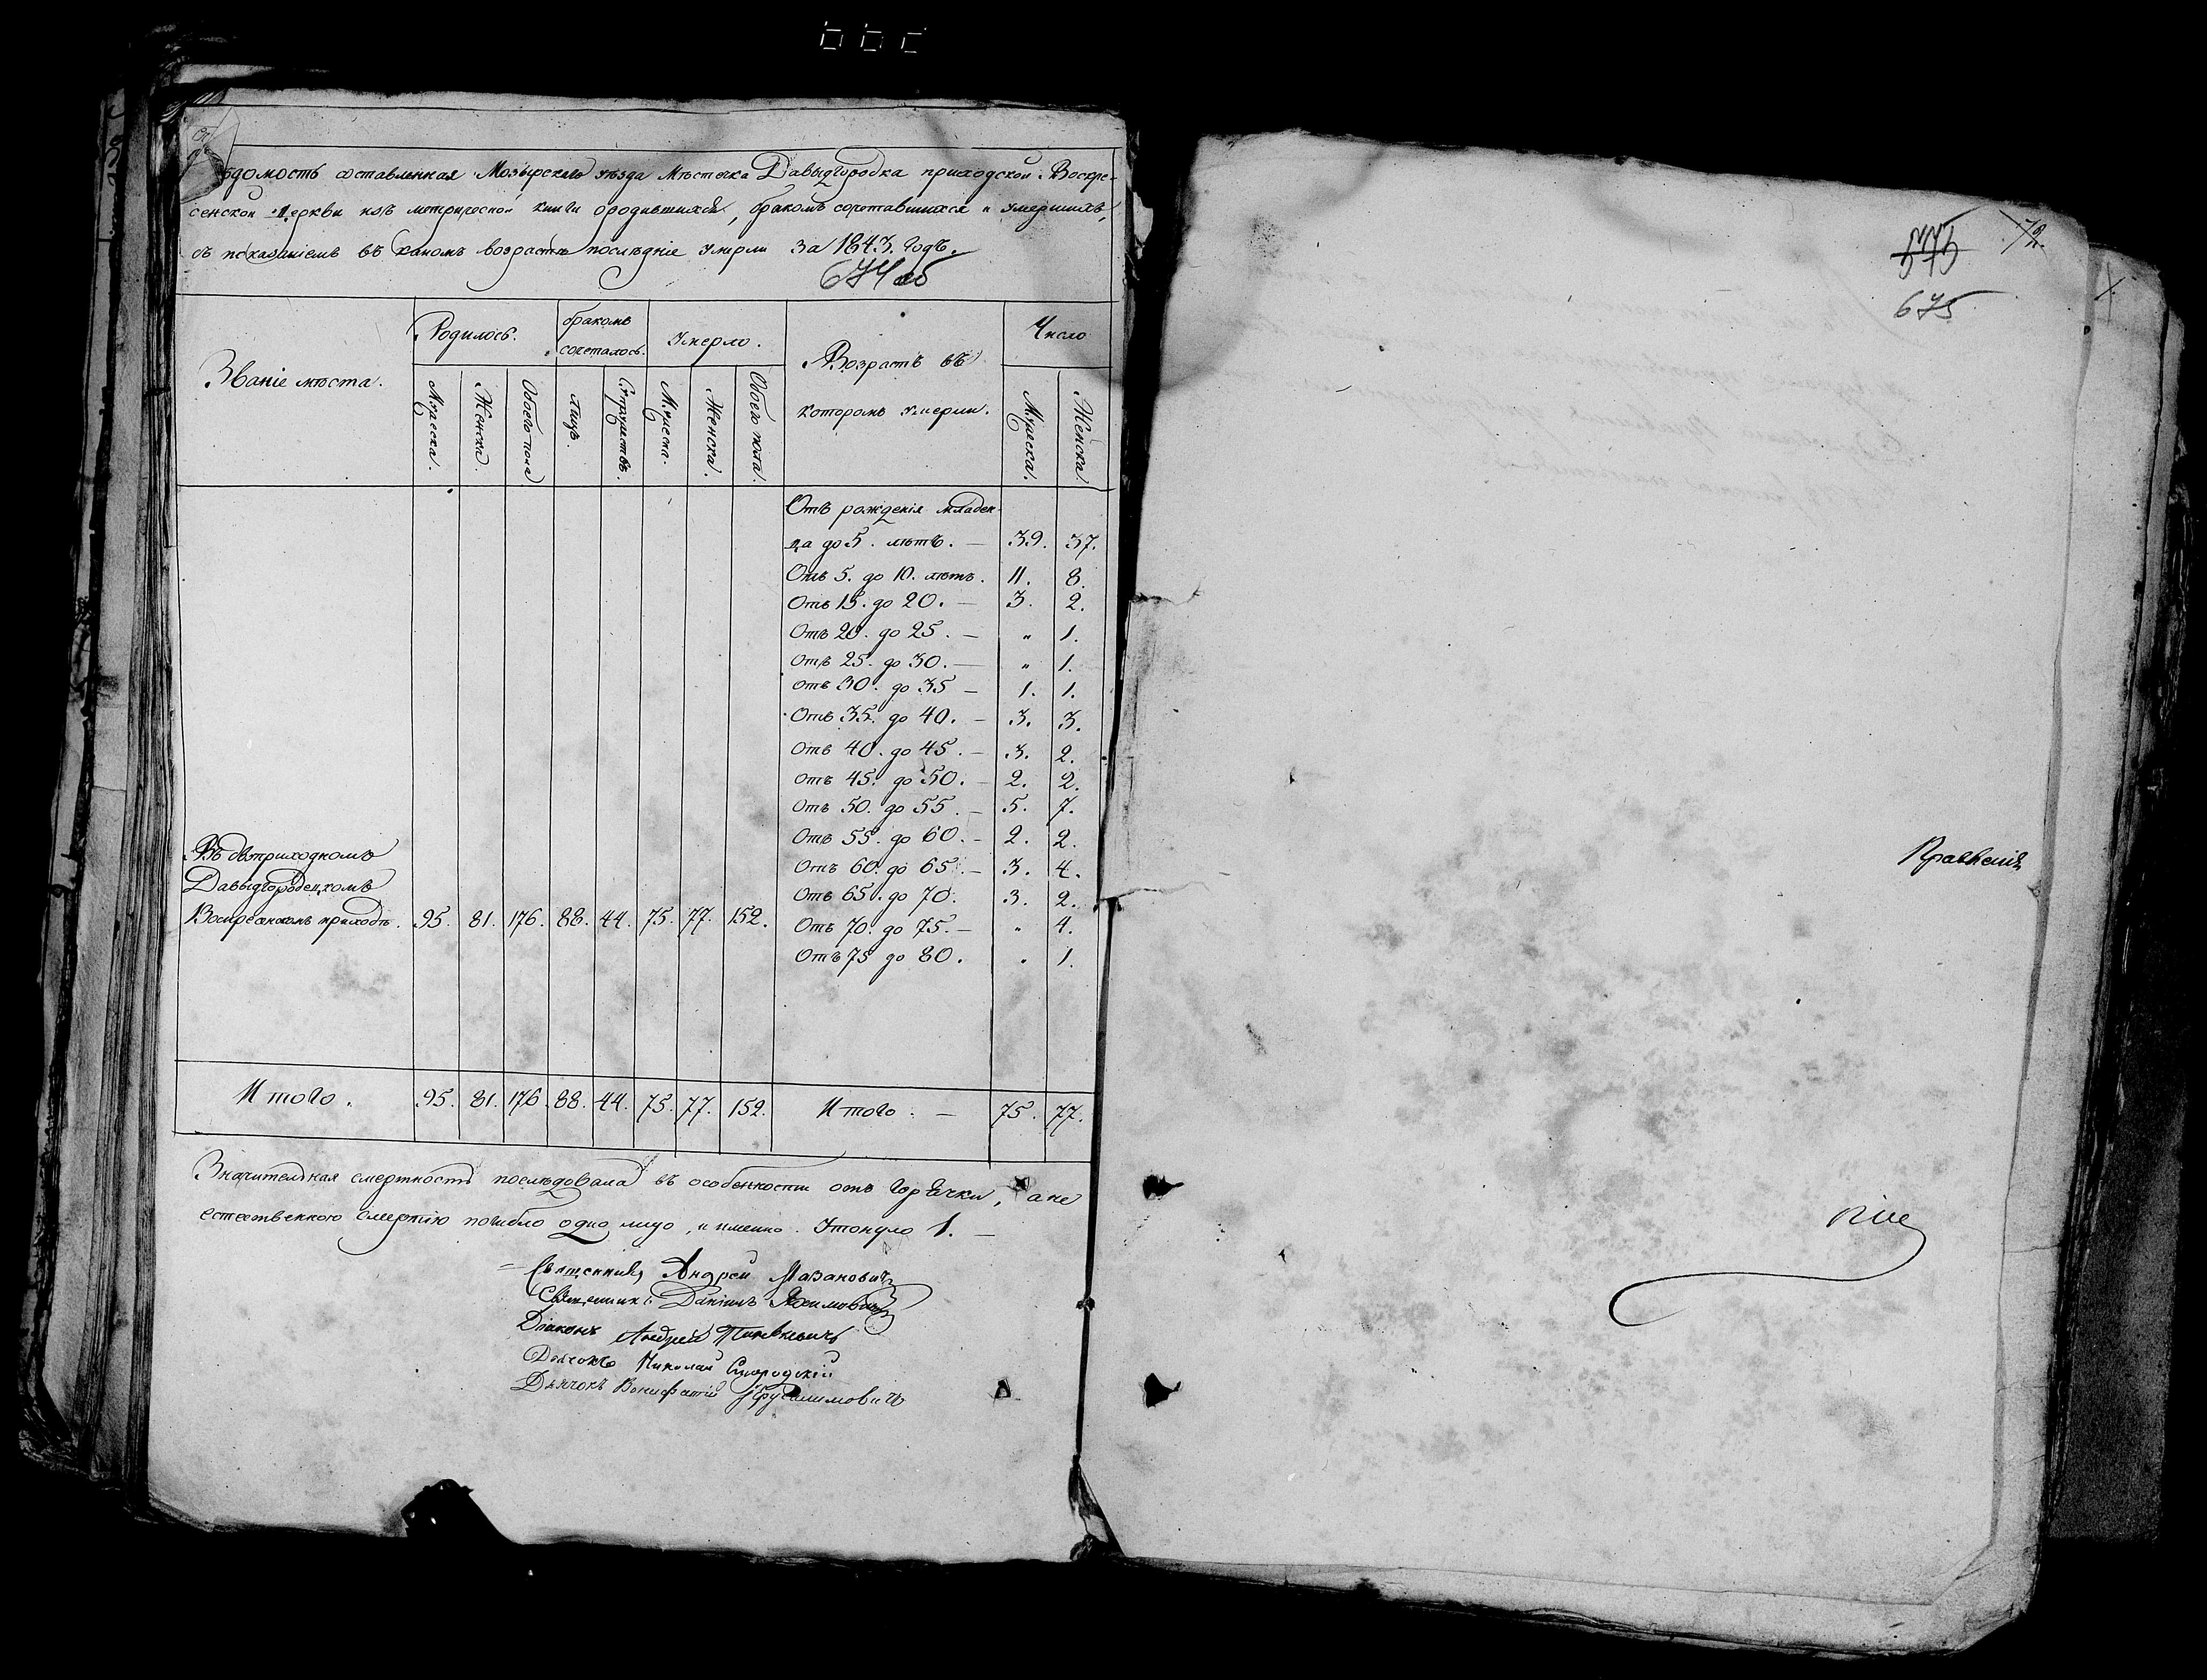 Вѣдомость составленная Мозырскаго уѣзда Мѣстечка Давыдгородка приходской Воскре-
сенской Церкви изъ метрической книги ородившихся, бракомъ сочетавшихся и умершихъ,
съ показаніемъ въ какомъ возрастѣ послѣдніе умерли за 1843. годъ.
674 об
Званіе мѣста.
Родилось.
бракомъ
сочеталось.
Умерло.
Возрастъ въ
которомъ умерли.
Число
Мужеска. Женска. Обоего пола Лицъ. Супружествъ. Мужеска. Женска. Обоего пола. Мужеска. Женска.
Отъ рожденія младен-
ца до 5. лѣтъ. — 39. 37.
Отъ 5. до 10. лѣтъ. 11. 8.
Отъ 15. до 20. — 3. 2.
Отъ 20. до 25. — „ 1.
Отъ 25. до 30. — „ 1.
Отъ 30. до 35 — 1. 1.
Отъ 35. до 40. — 3. 3.
Отъ 40. до 45. — 3. 2.
Отъ 45. до 50. — 2. 2.
Отъ 50. до 55. — 5. 7.
Отъ 55. до 60. — 2. 2.
Отъ 60. до 65. — 3. 4.
Отъ 65. до 70. 3. 2.
Отъ 70. до 75. — „ 4.
Отъ 75 до 80. „ 1.
Въ двуприходномъ
Давыдгородецкомъ
Воскресенскомъ приходѣ. 95. 81. 176. 88. 44. 75. 77. 152.
Итого. 95. 81. 176. 88. 44. 75. 77. 152. Итого. — 75. 77.
Значительная смертность послѣдовала въ особенности отъ горячки, а не
естественною смертію погибло одно лицо, и именно. Утонуло 1. —
Священникъ Андрей Мазановичъ
Священникъ Даніилъ Якимовичъ
Діаконъ Андрей Пинкевичъ
Дьячокъ Николай
Дьячокъ Вонифатій
575
675
72.